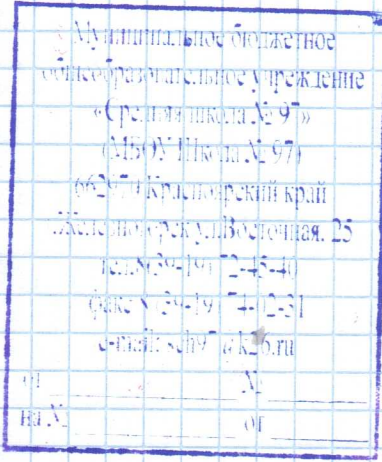 Муниципальное бюджетное
общеобразовательное учреждение
«Средняя школа № 97»
(МБОУ Школа № 97)
Красноярский край
Железногорск ул.Восточная, 25
тел.8(39-19) 72-45-40
факс 8(39-19) 74-02-31
e-mail: sch97@k26.ru
от № 
на № от